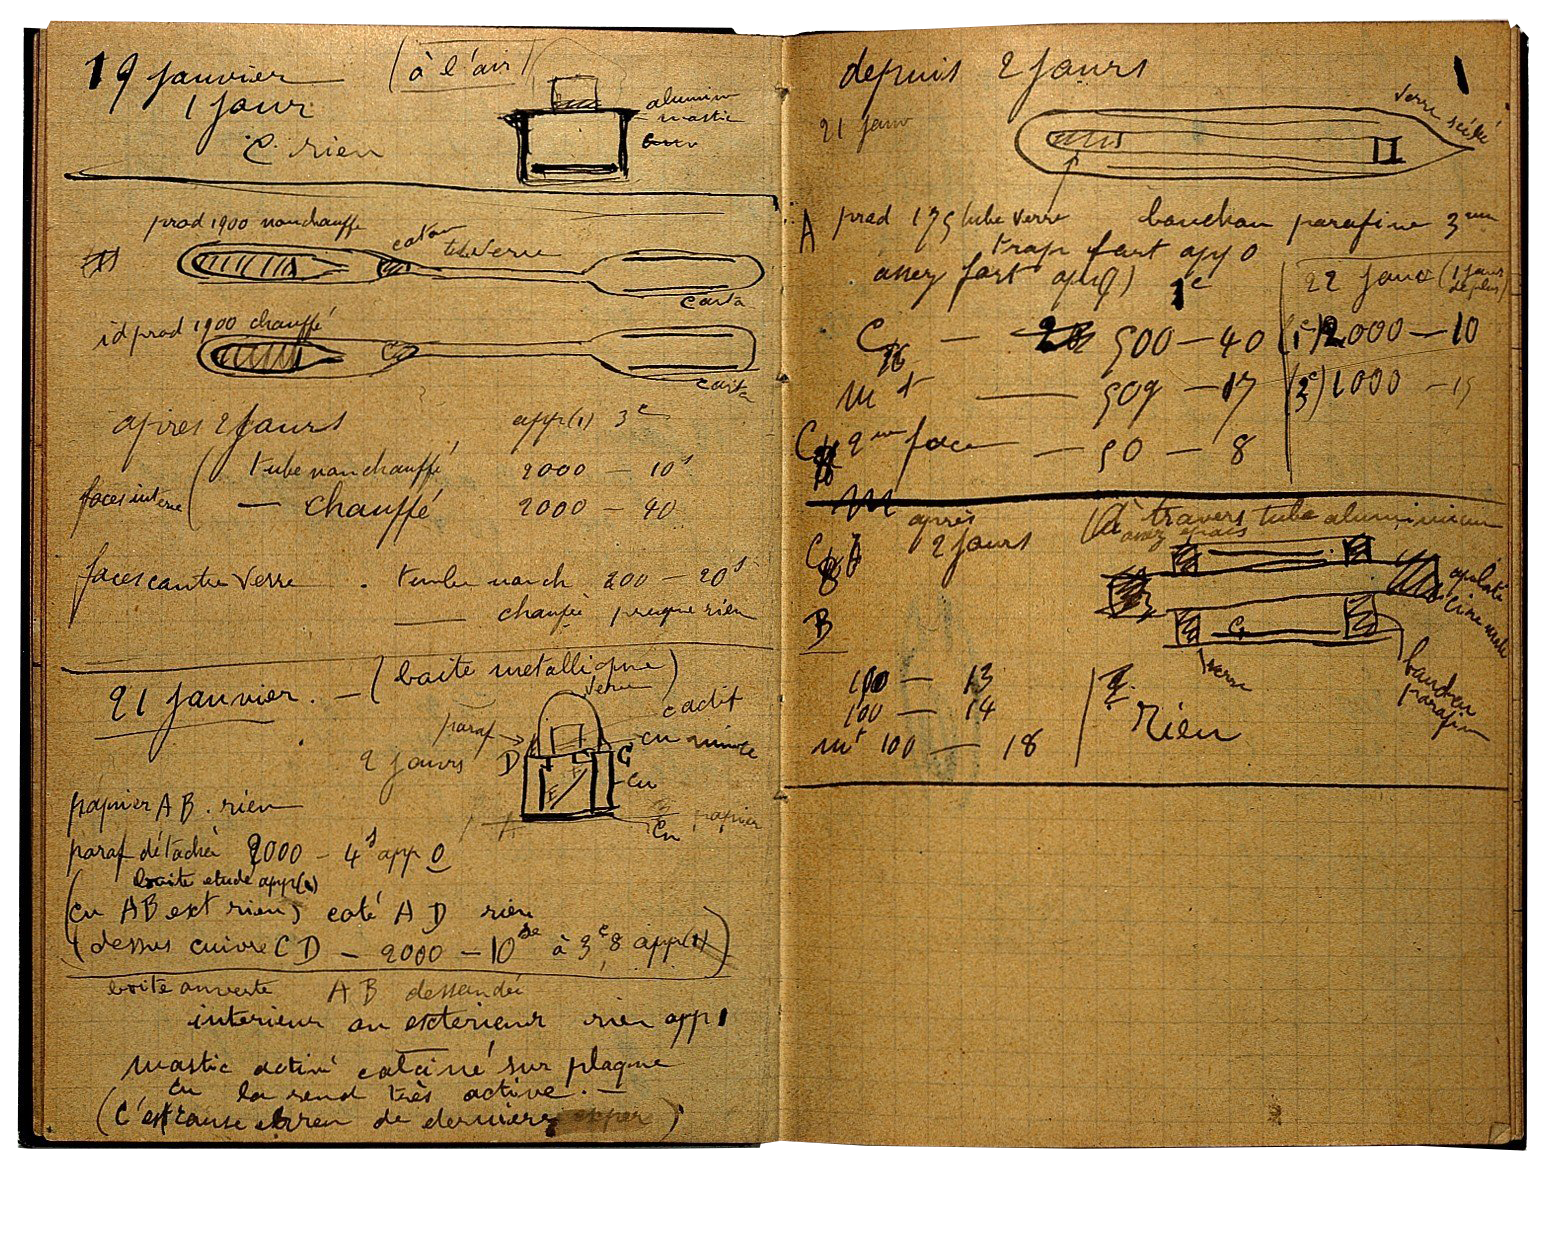 19 janvier (à l'air)
1 jour
C. rien
alumin
mastic
prod 1900 non chauffé
coton
tube verre
carta
id prod 1900 chauffé
carta
après 2 jours app(1) 3e
faces interne ( tube non chauffé 2000 — 10s
— chauffé 2000 — 40
faces contre verre . tube non ch 200 — 20s
— chauffé presque rien
21 janvier. — (boite metallique)
verre
paraf
c actif
cu mince
2 jours D C
cu
E
papier AB. rien
A Cu papier
paraf détaché 2000 — 4s app 0
boite etude app(1)
(cu AB ext rien) coté AD rien
(dessus cuivre CD — 2000 — 10 de à 3e,8 app(1))
boite ouverte AB dessoudé
interieur ou exterieur rien app 1
mastic activé calciné sur plaque
cu la rend très active. —
(C'est cause erreur de derniere exper)
depuis 2 jours 1
21 janv
verre scéllé
A prod 175 tube verre bouchon parafine 3mm
trop fort app 0
assez fort app(1) 1e 22 janv (1 jour de plus)
C — 500 — 40 (1e) 2000 — 10
mt — 509 — 17 (3e) 1000 — 15
C 2me face — 50 — 8
après
2 jours
(à travers tube aluminium
assez épais
C
B
verre
bouchon
parafin
100 — 13
100 — 14
mt 100 — 18
Rien